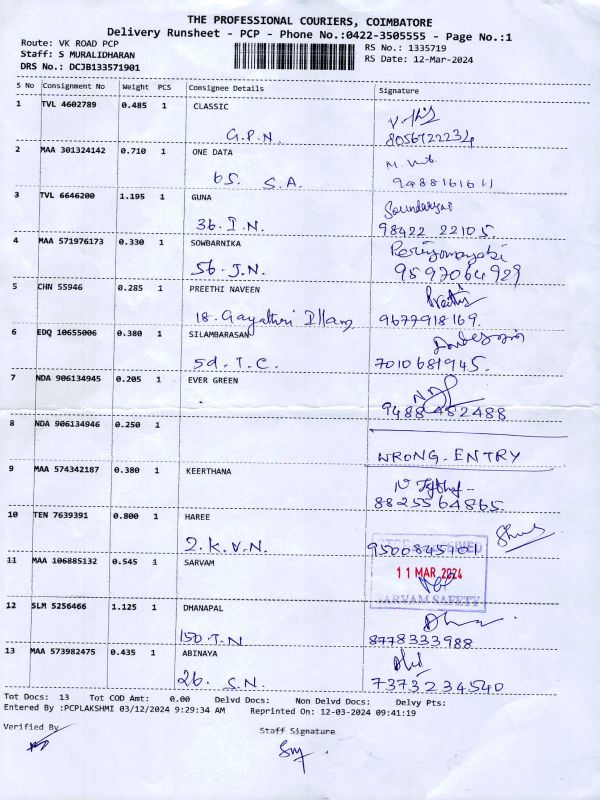 THE PROFESSIONAL COURIERS, COIMBATORE
Delivery Runsheet - PCP - Phone No.:0422-3505555 - Page No.:1
Route: VK ROAD PCP RS No.: 1335719
Staff: S MURALIDHARAN RS Date: 12-Mar-2024
DRS No.: DCJB133571901
S No Consignment No Weight PCS Consignee Details Signature
1 TVL 4602789 0.485 1 CLASSIC
G.P.N. 8056722234
2 MAA 301324142 0.710 1 ONE DATA
65. S.A. 9488161611
3 TVL 6646200 1.195 1 GUNA Soundarya
36. I.N. 98422 22105.
4 MAA 571976173 0.330 1 SOWBARNIKA
56. J.N. 9597064929
5 CHN 55946 0.285 1 PREETHI NAVEEN Preethi
18. Gayathri Illam 9677918169.
6 EDQ 10655006 0.380 1 SILAMBARASAN
5d. T.C. 7010681945.
7 NDA 906134945 0.205 1 EVER GREEN
9488452488
8 NDA 906134946 0.250 1
WRONG. ENTRY
9 MAA 574342187 0.380 1 KEERTHANA
8825564865.
10 TEN 7639391 0.800 1 HAREE
2. K.V.N. 9500845701
11 MAA 106885132 0.545 1 SARVAM
11 MAR 2024
SARVAM SAFETY
12 SLM 5256466 1.125 1 DHANAPAL
150. J.N 8778333988
13 MAA 573982475 0.435 1 ABINAYA
26. S.N. 7373234540
Tot Docs: 13 Tot COD Amt: 0.00 Delvd Docs: Non Delvd Docs: Delvy Pts:
Entered By :PCPLAKSHMI 03/12/2024 9:29:34 AM Reprinted On: 12-03-2024 09:41:19
Verified By
Staff Signature